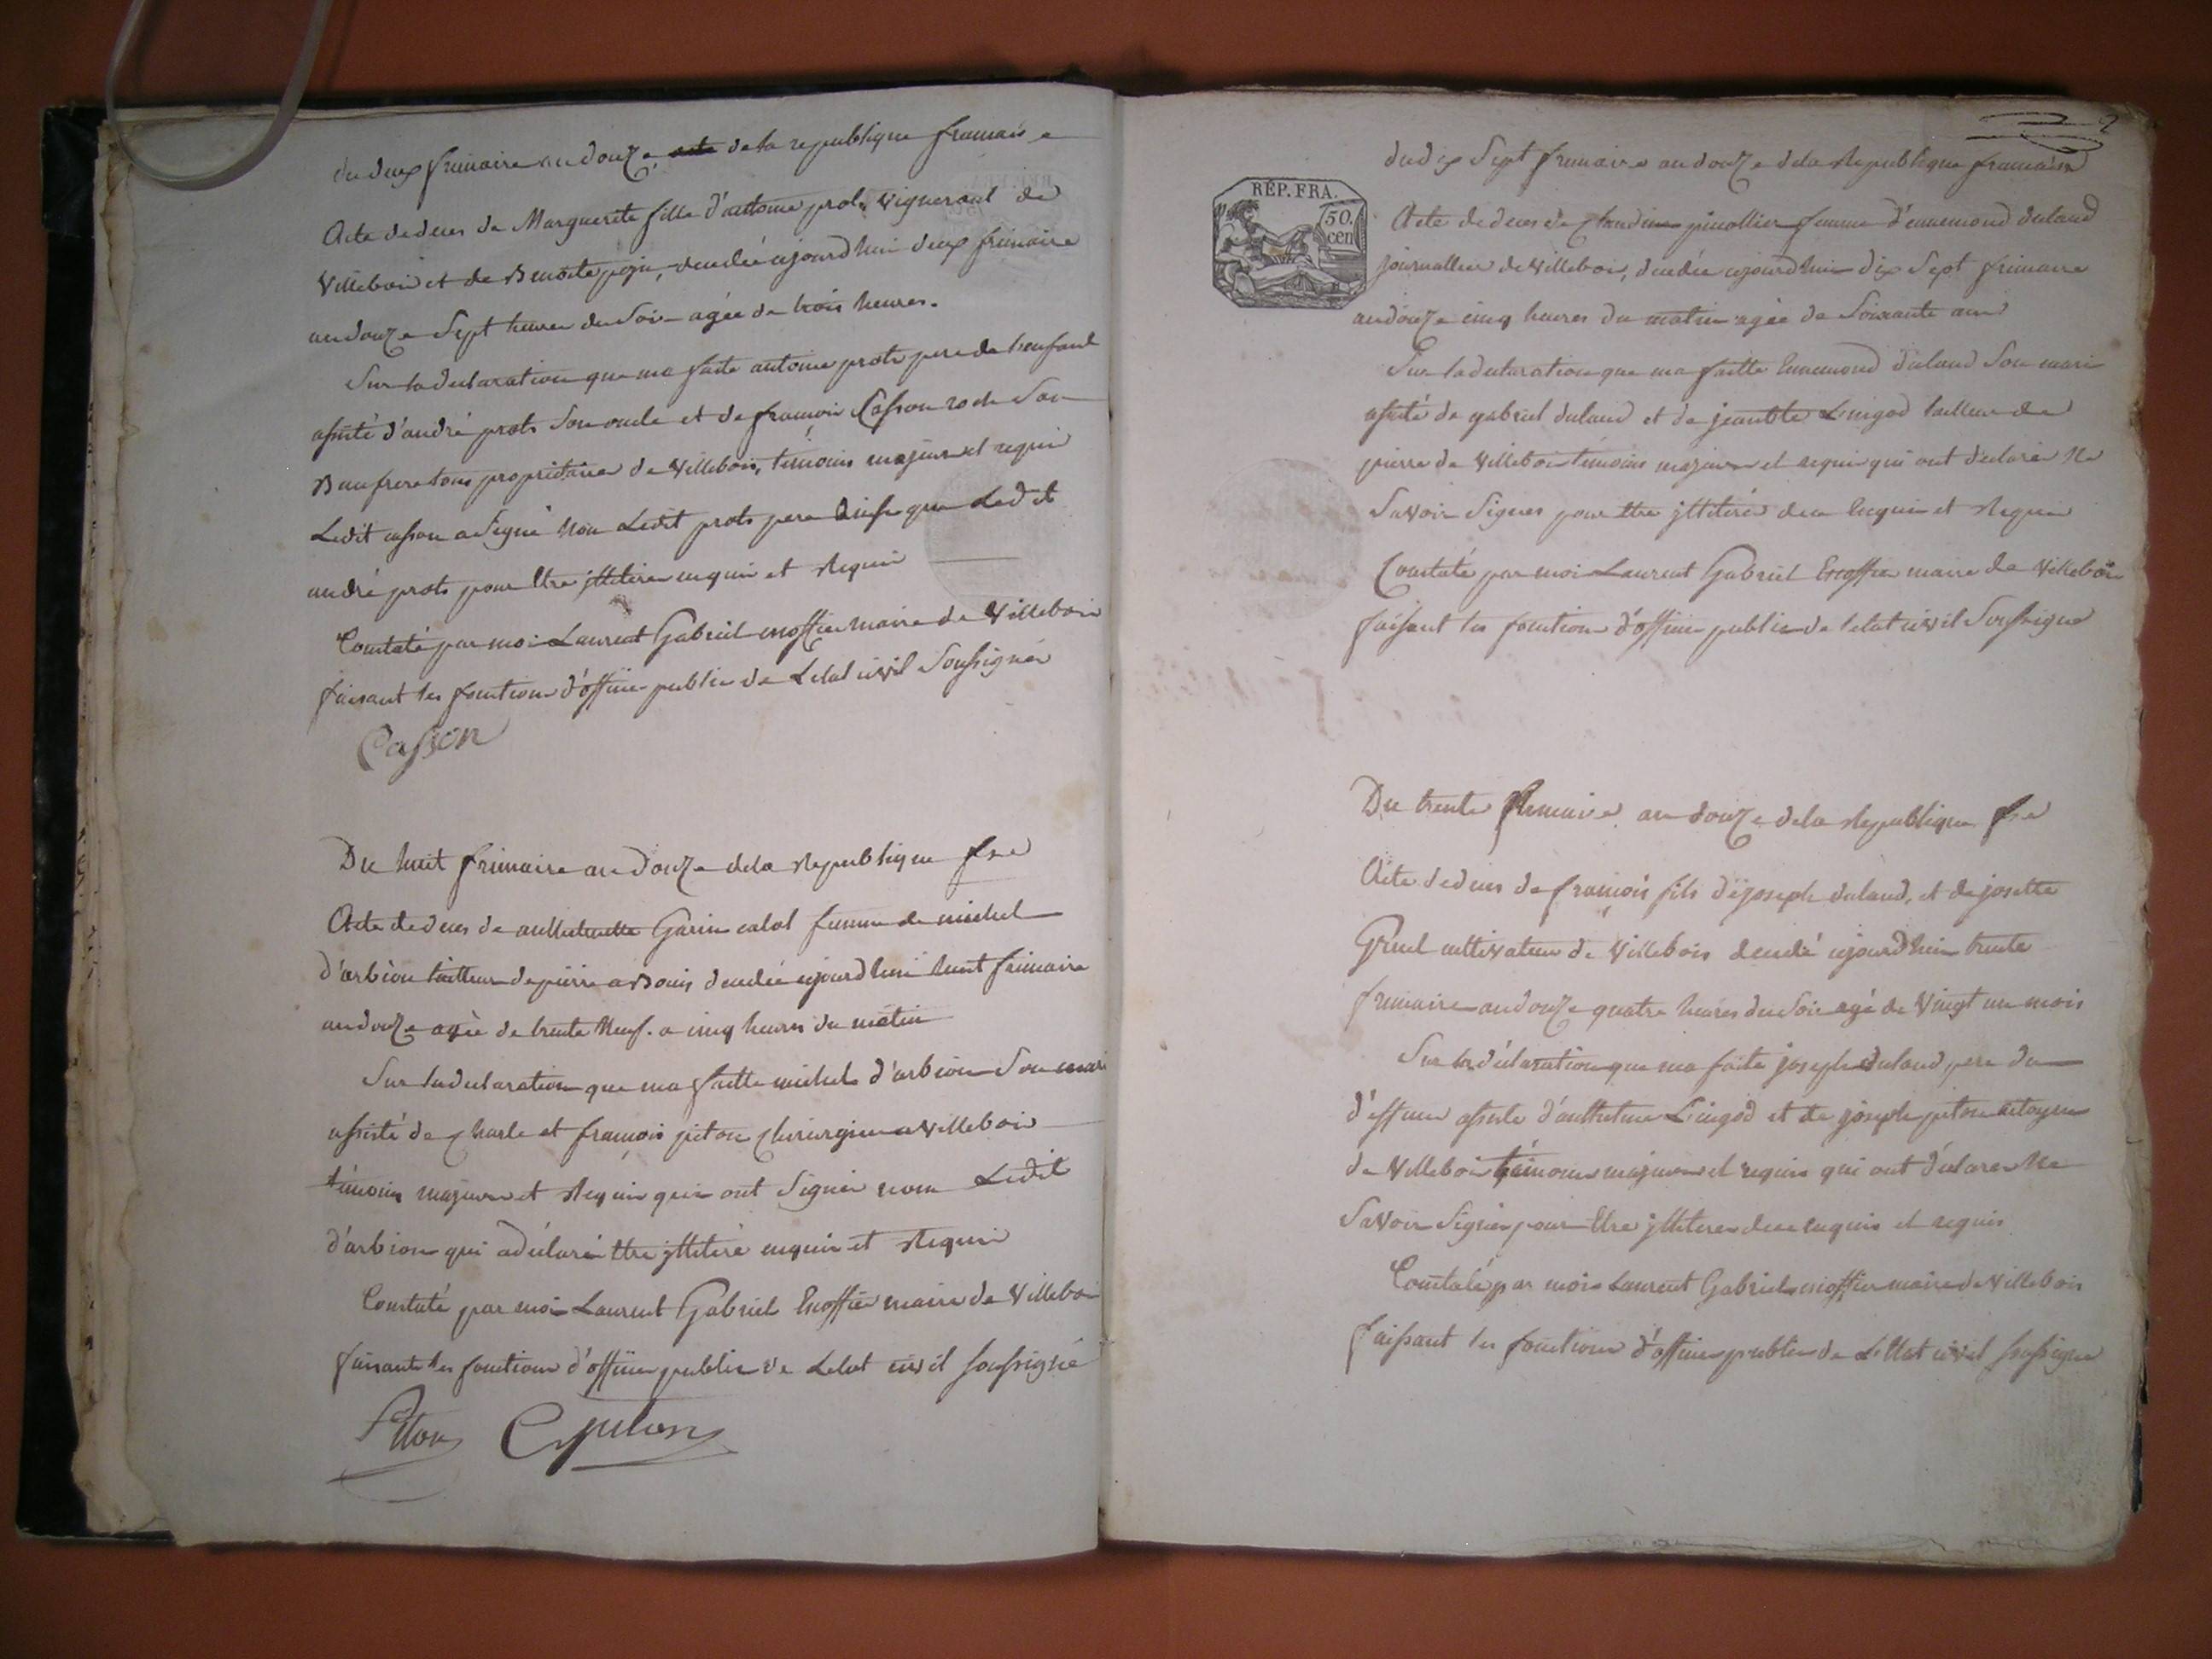 du deux frimaire an douze de la republique francaise
Acte de deces de Marguerite fille d'antoine prots vigneront de
villebois et de Benoite pojin, decedée ajourdhui deux frimaire
an douze Sept heures du Soir agée de trois heures.
Sur la declaration que ma faite antoine prots pere de lenfant
assisté d'andré prots Son oncle et de francois Casson Son
Beaufrere tous propriétaires de villebois, témoins majeurs et requis
Ledit casson a Signé non Ledit prots pere Ainsi que Ledit
andré prots pour Etre jlliteré enquis et Requis
Constaté par moi Laurent Gabriel Escoffier maire de Villebois
faisant les fonctions d'officier public de Letat civil Soussigné
Casson
Du huit frimaire an Douze de la Republique fse
Acte de deces de anthelmette Garin calot femme de michel
d'arbion tailleur de pierre a Bouis decedée ajourdhui huit frimaire
an douze agée de trente Neuf. a cinq heures du matin
Sur la declaration que ma faitte michel d'arbion Son mari
assisté de Charle et francois piton Chirurgien a villebois
témoins majeurs et Requis qui ont Signé non Ledit
d'arbion qui a déclaré Etre jlliteré enquis et Requis
Constaté par moi Laurent Gabriel Escoffier maire de Villebois
faisant les fonctions d'officier public de Letat civil soussigné
Piton C piton
2
du dix Sept frimaire an douze de la Republique francaise
RÉP. FRA.
50. cen
Acte de deces de Claudine pinollier femme d'ennemond duland
journallier de Villebois, decedée ajourdhui dix Sept frimaire
an douze cinq heures du matin agée de Soixante ans
Sur la declaration que ma faitte Ennemond duland Son mari
assisté de gabriel duland et de jeanbte Lingod tailleur de
pierre de Villebois témoins majeurs et requis qui ont declaré Ne
Savoir Signer pour Etre jlliteré de ce Enquis et Requis
Constaté par moi Laurent Gabriel Escoffier maire de Villebois
faisant les fonctions d'officier public de letat civil Soussigné
Du trente frimaire an douze de la Republique fse
Acte de deces de francois fils de joseph duland, et de josette
Gruel cultivateur de Villebois decedé ajourdhui trente
frimaire an douze quatre heures du Soir agé de Vingt un mois
Sur la déclaration que ma faite joseph duland pere du
d'effunt assisté d'anthelme Lingod et de joseph piton citoyens
de Villebois témoins majeurs et requis qui ont déclaré Ne
Savoir Signer pour Etre jlliteré de ce enquis et requis
Constaté par moi Laurent Gabriel Escoffier maire de Villebois
faissant les fonctions d'officier public de L'Etat civil soussigné